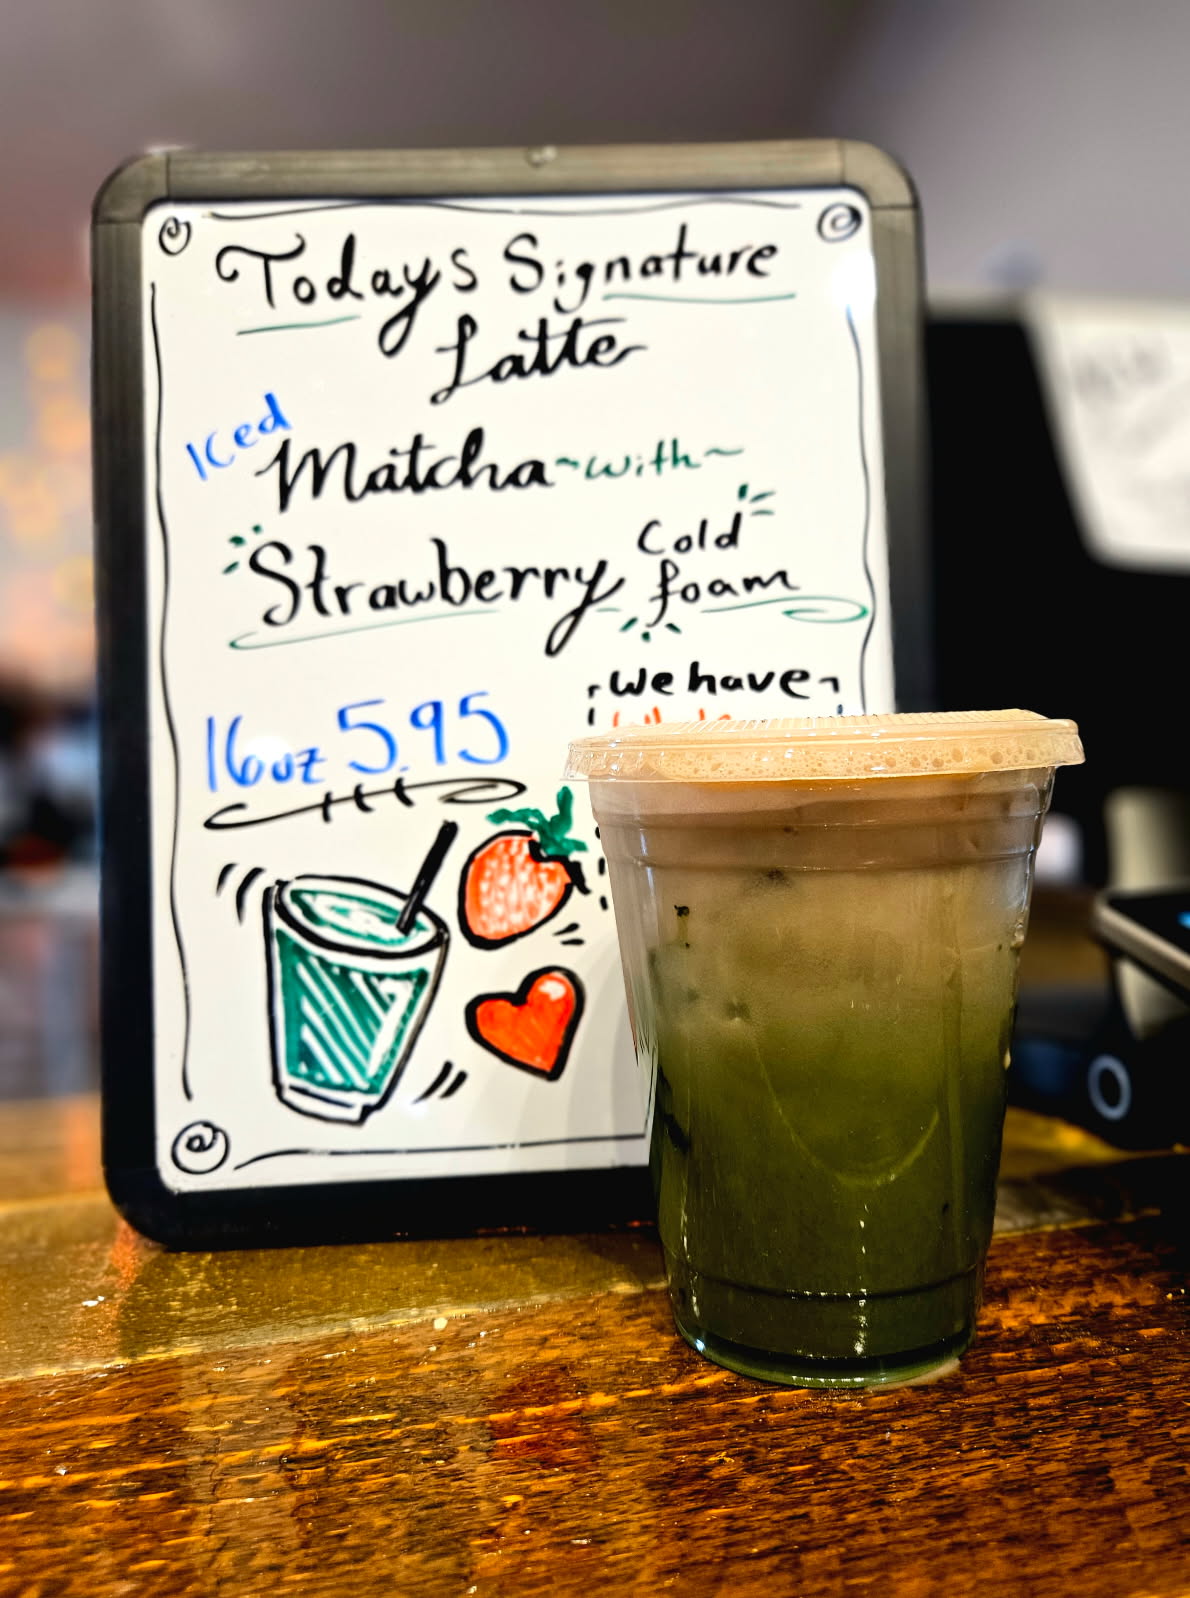 Todays Signature
Latte
Iced
Matcha ~with~
Strawberry Cold
foam
We have
16oz 5.95